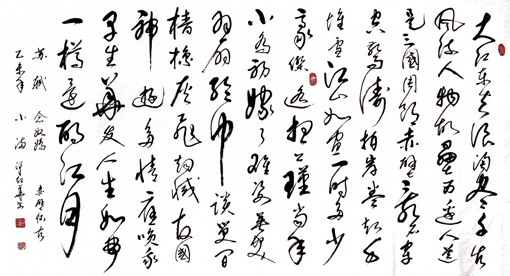 大江东去浪淘尽千古
风流人物故壘西邊人道
是三國周郎赤壁乱石穿
空驚涛拍岸卷起千
堆雪江山如画一时多少
豪傑遥想公瑾当年
小乔初嫁了雄姿英发
羽扇纶巾谈笑间
樯橹灰飛烟滅故国
神游多情应笑我
早生華发人生如梦
一樽還酹江月
苏轼 念奴嬌 赤壁怀古
乙未年 小满